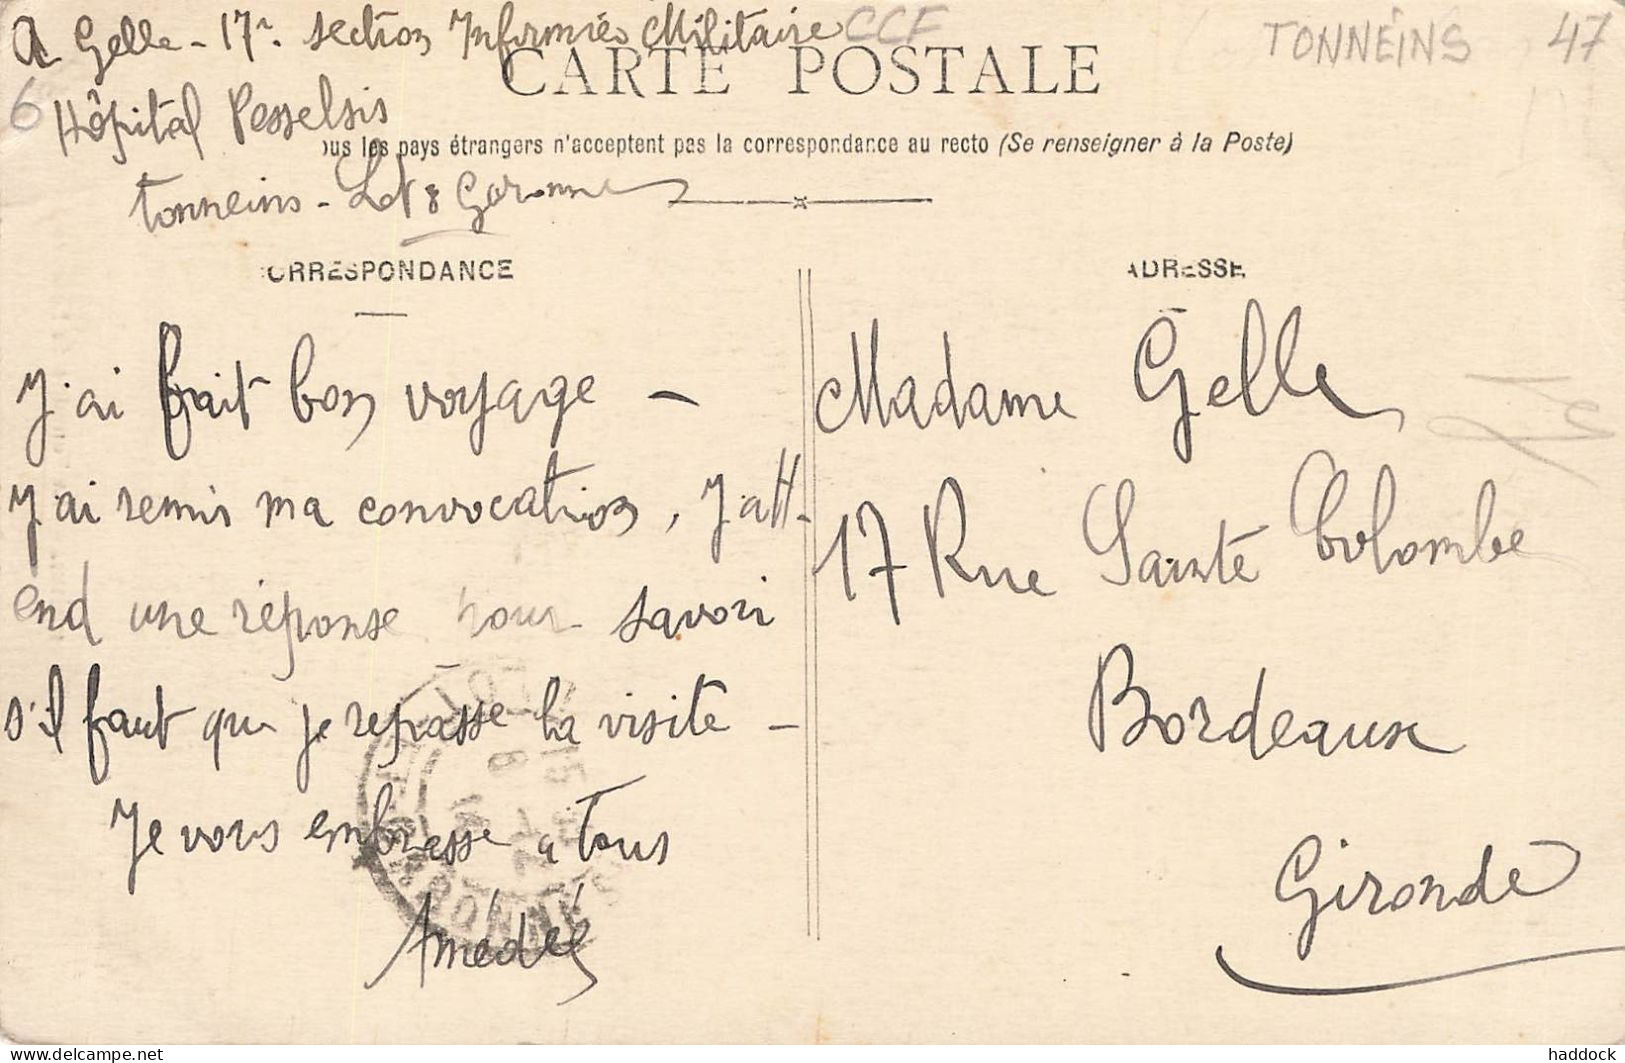 A Gelle - 17e. section Infirmiés Militaire CCF
TONNEINS 47
CARTE POSTALE
6 Hôpital
ous les pays étrangers n'acceptent pas la correspondance au recto (Se renseigner à la Poste)
tonneins - Lot & Garonne
ORRESPONDANCE
ADRESSE
J'ai fait bon voyage -
J'ai remis ma convocation, J'att-
end une réponse pour savoir
s'il faut que je repasse la visite -
Je vous embrasse a tous
Amédée
Madame Gelle
17 Rue Sainte Colombe
Bordeaux
Gironde
www.delcampe.net
haddock